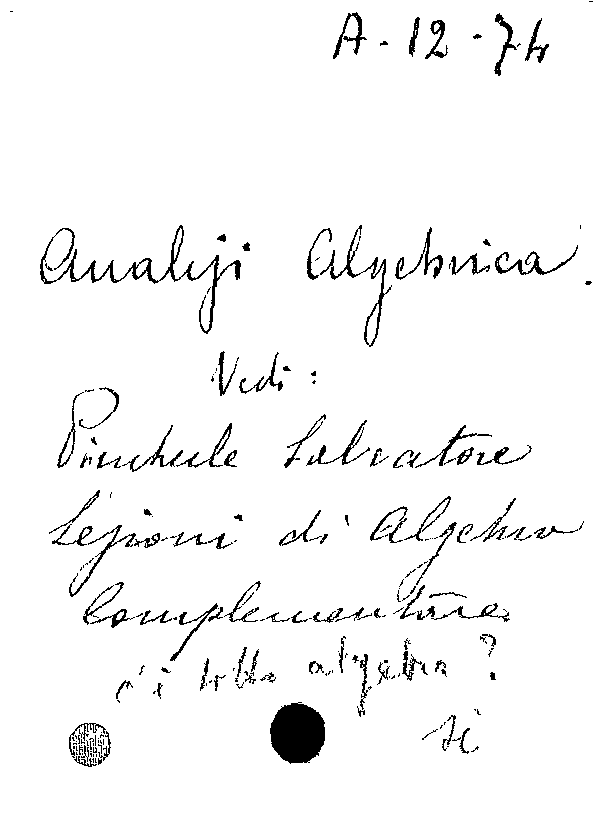 A-12-74
Analisi Algebrica.
Vedi:
Pincherle Salvatore
Lezioni di Algebra
Complementare
c'è tutta algebra?
si